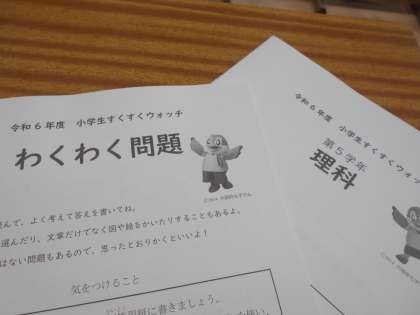 令和6年度 小学生すくすくウォッチ
わくわく問題
んで、よく考えて答えを書いてね。
選んだり、文章だけでなく図や絵をかいたりすることもあるよ。
はない問題もあるので、思ったとおりかくといいよ！
気をつけること
に書きましょう。
令和6年度 小学生すくすくウォッ
第5学年
理科